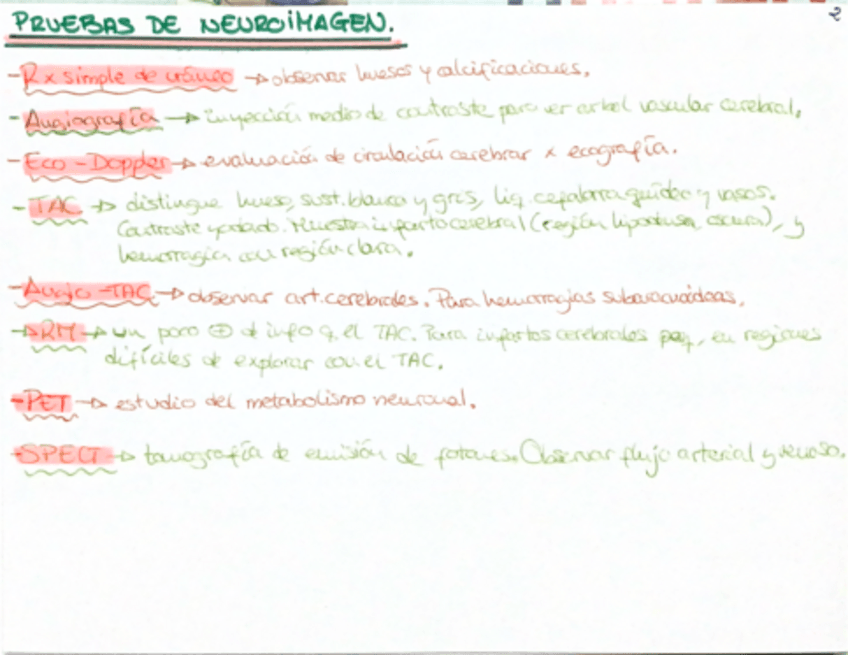 PRUEBAS DE NEUROIMAGEN.
2
- Rx simple de cráneo → observar huesos y calcificaciones.
- Angiografía → inyección medio de contraste para ver arbol vascular cerebral.
- Eco-Doppler → evaluación de circulación cerebrar x ecografía.
- TAC → distingue hueso, sust. blanca y gris, liq. cefalorraquídeo y vasos.
Contraste yodado. Muestra infarto cerebral (región hipodensa, oscura), y
hemorragia con región clara.
- Angio-TAC → observar art. cerebrales. Para hemorragias subaracnoideas.
- RM → un poco ⊕ d info q el TAC. Para infartos cerebrales peq, en regiones
difíciles d explorar con el TAC.
- PET → estudio del metabolismo neuronal.
- SPECT → tomografía de emisión de fotones. Observar flujo arterial y venoso.